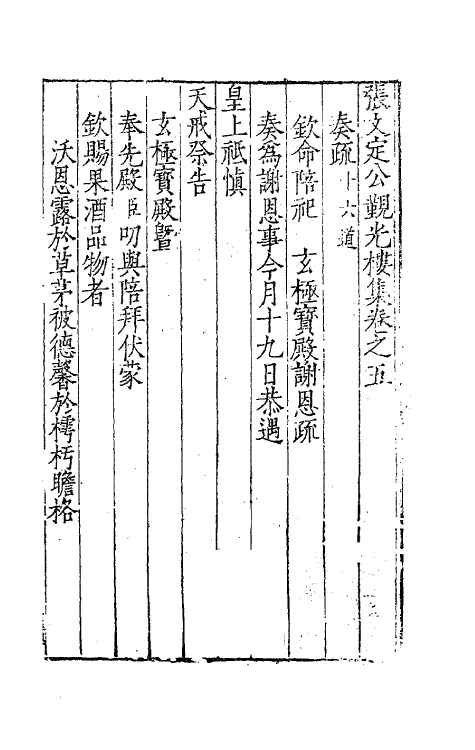 張文定公觀光樓集卷之五
奏疏十六道
欽命陪祀　玄極寶殿謝恩疏
奏為謝恩事今月十九日恭遇
皇上祗慎
天戒祭告
玄極寶殿暨
奉先殿臣叨與陪拜伏蒙
欽賜果酒品物者
沃恩露於草茅被德馨於樗朽瞻格